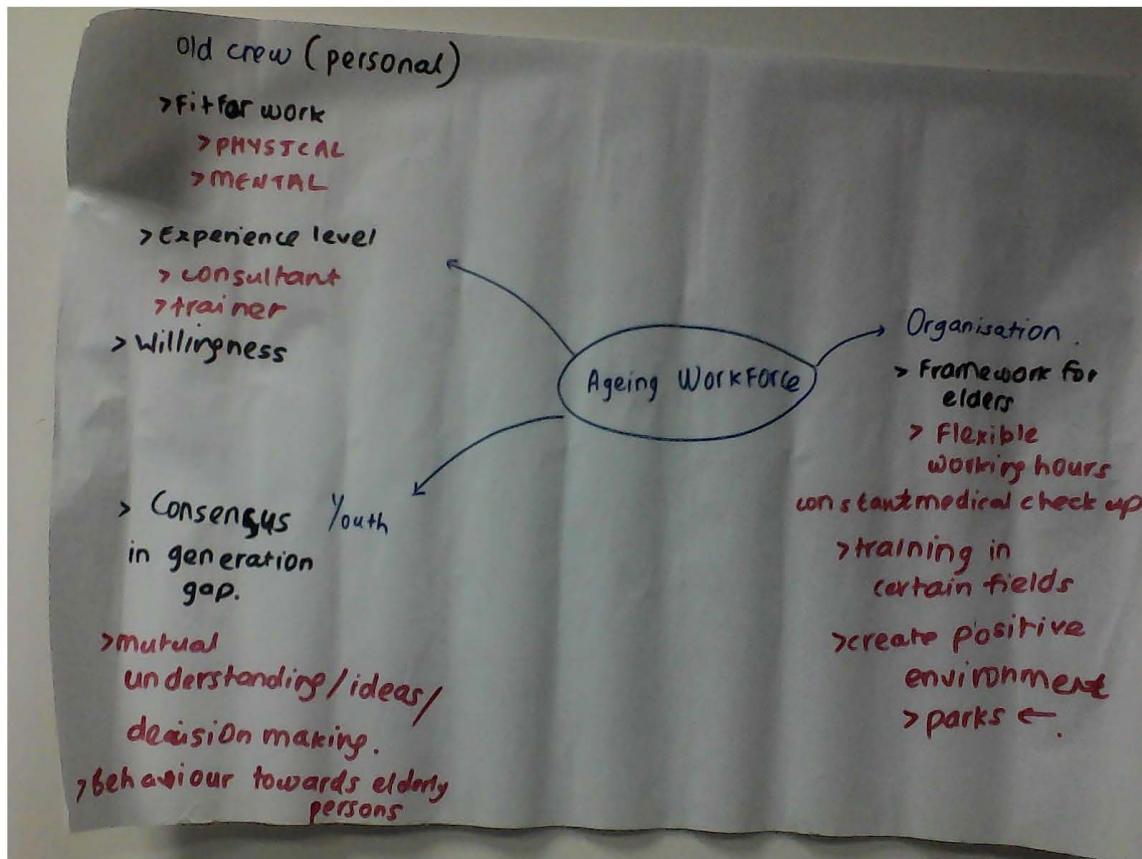 Old crew (personal)
> Fit for work
> PHYSICAL
> MENTAL
> Experience level
> consultant
> trainer
> Willingness
Ageing WorkForce
> Consensus Youth
in generation
gap.
> mutual
understanding/ideas/
decision making.
> Behaviour towards elderly
persons
Organisation.
> Framework for
elders
> Flexible
working hours
constant medical check up
> training in
certain fields
> create positive
environment
> parks ←.